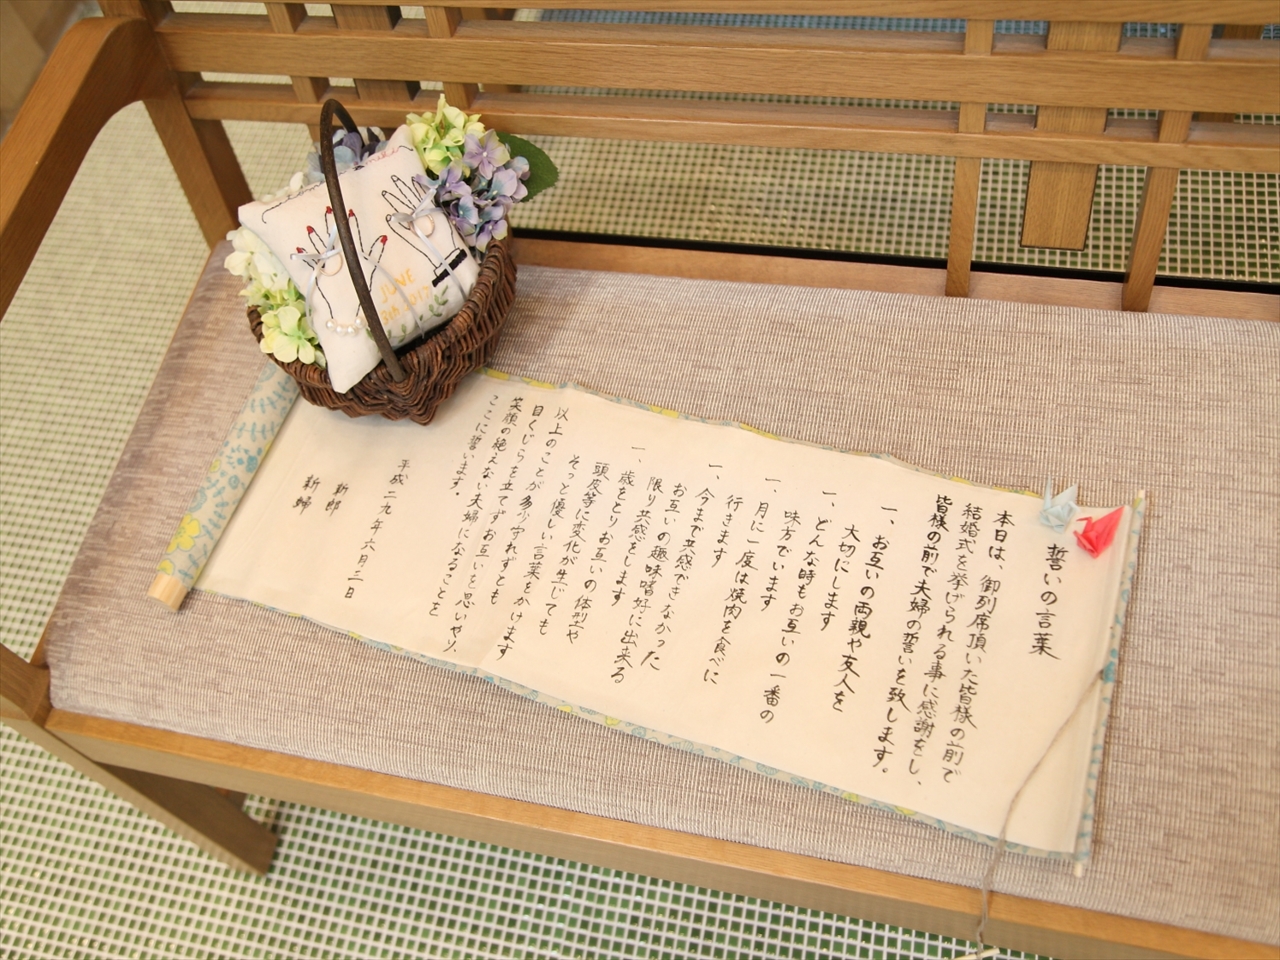 誓いの言葉
本日は、御列席頂いた皆様の前で
結婚式を挙げられる事に感謝をし、
皆様の前で夫婦の誓いを致します。
一、お互いの両親や友人を
大切にします
一、どんな時もお互いの一番の
味方でいます
一、月に一度は焼肉を食べに
行きます
一、今まで共感できなかった
お互いの趣味嗜好に出来る
限り共感をします
一、歳をとりお互いの体型や
頭皮等に変化が生じても
そっと優しい言葉をかけます
以上のことが多少守れずとも
目くじらを立てずお互いを思いやり、
笑顔の絶えない夫婦になることを
ここに誓います。
平成二九年六月三日
新郎
新婦
JUNE
2017